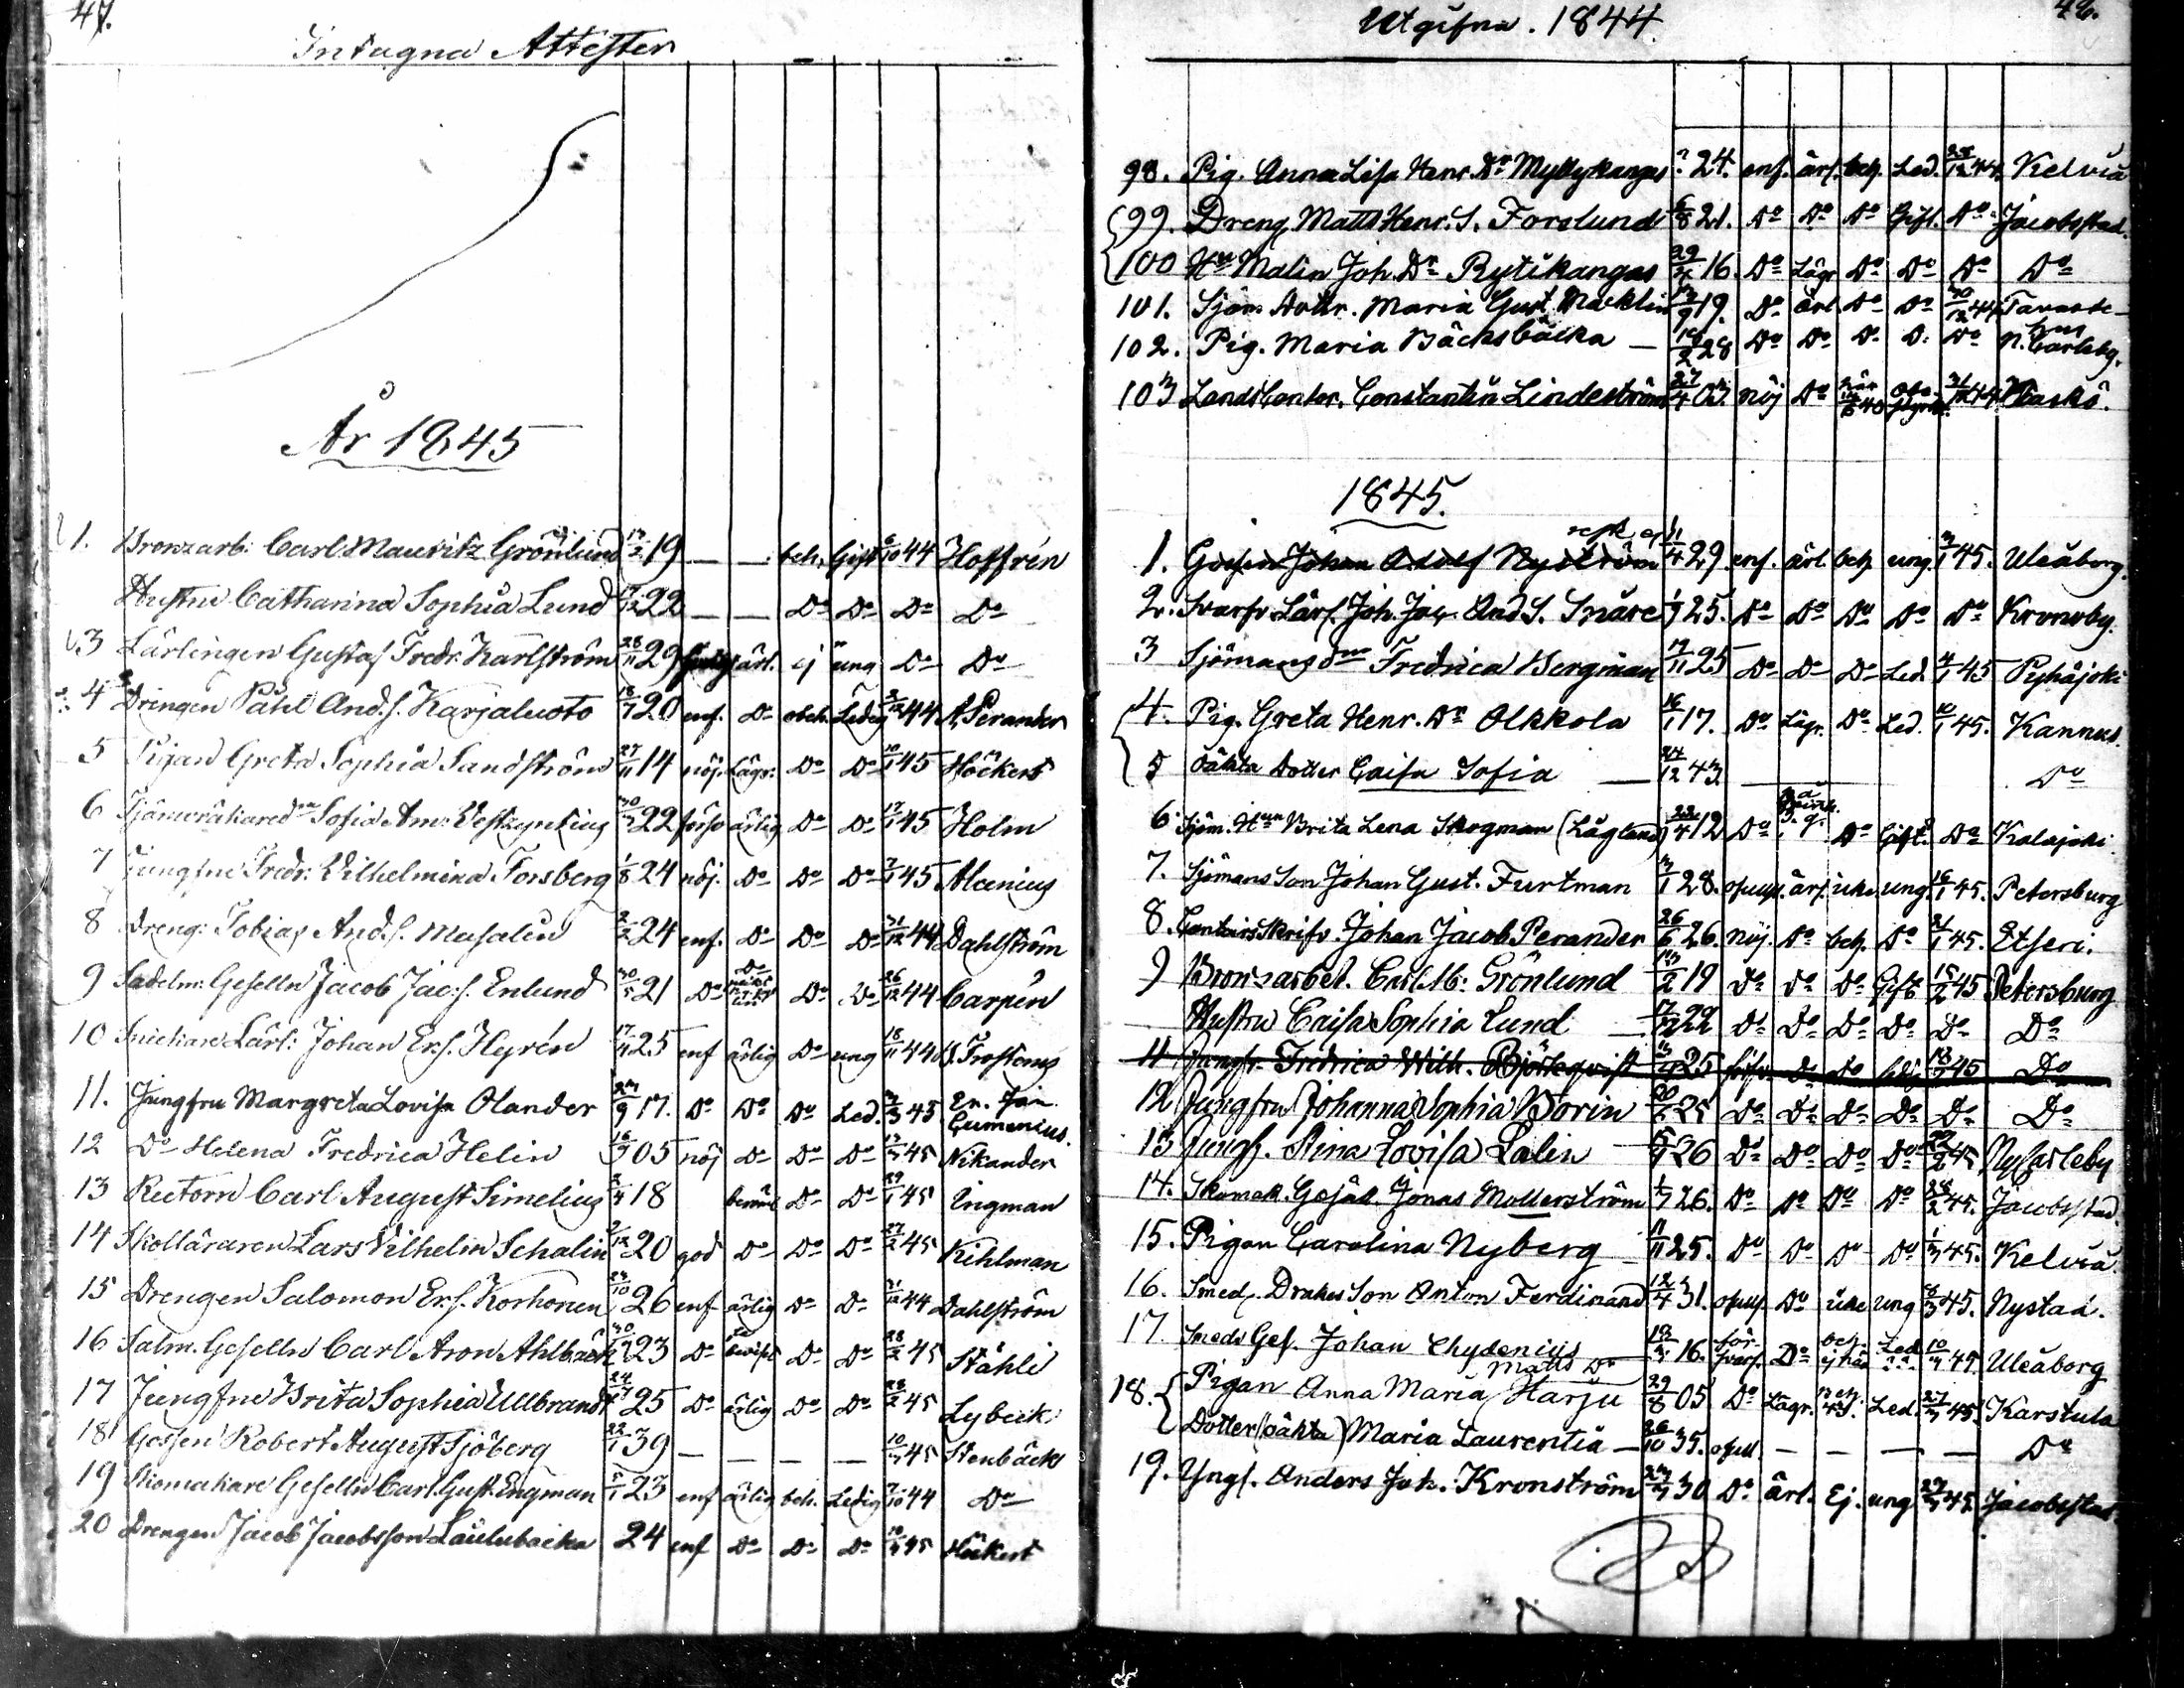 47.
Intagna Attester
År 1845
1. Bronzarb: Carl Mauritz Grönlund 13/2 19 — — beh. Gift 6/10 44 Hoffrén
Hustru Catharina Sophia Lund 17/12 22 — — Do Do Do Do
3 Lärlingen Gustaf Fredr. Karlström 28/11 29 ärl. ej ung Do Do
4 Drengen Påhl And.s. Karjaluoto 18/1 20 enf. Do obeh. Ledig 2/12 44 A. Perander
5 Pigan Greta Sophia Sandström 27/11 14 nöj. Lägr. Do Do 10/1 45 Höckert
6 Sofia Am: 22 försv ärlig Do Do 17/1 45 Holm
7 Jungfru Fredr. Vilhelmina Forsberg 1/8 24 nöj. Do Do Do 7/1 45 Alcenius
8 Dreng: Tobias And.s. Masalin 2/2 24 enf. Do Do Do 31/12 44 Dahlström
9 Sadelm: Geselln Jacob Jac:s. Enlund 30/5 21 Do Do Do Do 26/12 44 Carpén
10 Snickare Lärl: Johan Er.s. Heyrén 17/11 25 enf ärlig Do ung 18/11 44
11. Jungfru Margreta Lovisa Olander 23/9 17. Do Do Do Led. 3/3 45
Cumenius.
12 Do Helena Fredrica Helin 16/3 05 nöj Do Do Do 13/3 45 Nikander
13 Rectorn Carl August Simelius 2/4 18 Do Do 29/1 45 Ingman
14 Skolläraren Lars Vilhelm Schalin 2/12 20 god Do Do Do 27/2 45 Kihlman
15 Drengen Salomon Er.s. Korhonen 23/10 26 enf ärlig Do Do 31/12 44 Dahlström
16 Salm. Geselln Carl Aron Ahlbäck 23 Do Do Do 28/2 45 Ståhle
17 Jungfru Brita Sophia Ullbrandt 24/7 25 Do ärlig Do Do 28/2 45 Lybeck
18 Gossen Robert August Sjöberg 22/1 39 — — — — 10/3 45 Stenbäck
19 Skomakare Geselln Carl Gust. Engman 5/1 23 enf ärlig beh. Ledig 7/10 44 Do
20 Drengen Jacob Jacobsson 24 enf Do Do Do 10/3 45 Höckert
Utgifna. 1844. 48.
98. Pig. Anna Lisa Henr. Dr Myllykangas ? 24. enf. ärl. beh. Led. 28/12 44. Kelviå
99. Dreng Matts Henr. S. Forslund 6/8 21. Do Do Do Gift. Do Jacobstad.
100 Hu Malin Joh. Dr Rytikangas 29/4 16 Do Lägr. Do Do Do Do
101. Sjöm. Dottr. Maria Gust. Macklin 13/9 19. Do ärl. Do Do 30/12 44. Tavaste-
hus
102. Pig. Maria Bäcksbacka — 19/2 28 Do Do Do D. Do N. Carleby.
103 Lands Contor. Constantin Lindeström 27/4 03. nöj Do 31/12 44. Kaskö.
1845.
1. Gossen Johan Adolf Nyström 11/4 29 enf. ärl. beh. ung. 3/1 45. Uleåborg.
2. Svarfv. Lärl. Joh. Jac. And S. Snåre 1/9 25. Do Do Do Do Do Kronoby.
3 Sjömans Fredrica Bergman 17/11 25 Do Do Do Led. 4/1 45 Pyhäjoki
4. Pig. Greta Henr. Dr Olkkola 16/1 17. Do Lägr. Do Led. 10/1 45. Kannus.
5 Oäkta Dotter Caisa Sofia — 24/12 43. Do
6 Sjöm. Hun Brita Lena Skogman (Lågland) 22/4 12 Do Do Gift. Do Kalajoki.
7. Sjömans Son Johan Gust. Furtman 3/1 28. ärl. icke ung. 16/1 45. Petersburg
8. Contoirs Skrifv. Johan Jacob Perander 26/6 26. nöj. Do beh. Do 21/1 45. Etseri.
9 Bronzarbet. Carl M: Grönlund 13/2 19 Do Do Do Gift 15/2 45 Petersburg.
Hustru Caisa Sophia Lund — 17/12 22 Do Do Do Do Do Do
11. Jungfr. Fredrica Wilh. Björkqvist 25 försv. Do Do 18/2 45 Do
12. Jungfru Johanna Sophia Borin 25 Do Do Do Do Do Do
13 Jungf. Stina Lovisa Lalin 26 Do Do Do Do 22/2 45 Ny Carleby
14. Skomak. Gesäll. Jonas Mollerström 1/7 26. Do Do Do Do 28/2 45. Jacobstad.
15. Pigan Carolina Nyberg 11/11 25. Do Do Do Do 1/3 45. Kelviå.
16. Smed. Drakes Son Anton Ferdinand 12/4 31. Do icke ung 8/3 45. Nystad.
17. Smeds Ges. Johan Chydenius 19/3 16. för-
svarl. Do beh. Led. 10/3 45. Uleåborg
18. Pigan Anna Maria Matts Dr Harju 29/8 05 Do Lägr. Led. 27/3 45. Karstula
Dotter (oäkta) Maria Laurentia — 26/10 35. — — — — Do
19. Yngl. Anders Joh. Kronström 23/3 30 Do ärl. Ej. ung 27/3 45. Jacobstad.